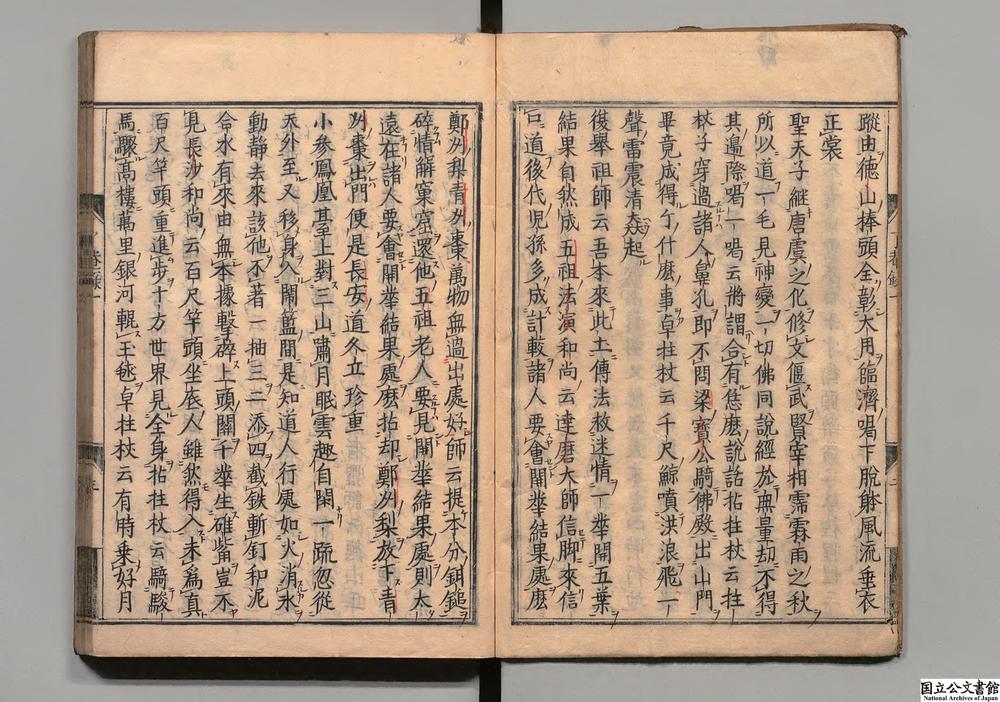 蹤由德山棒頭全彰大用臨濟喝下脫躲風流垂衣
正裳
聖天子繼唐虞之化修文偃武賢宰相霈霖雨之秋
所以道一毛見神變一切佛同說經於無量刧不得
其邊際喝一喝云將謂合有恁麼說話拈拄杖云拄
杖子穿過諸人鼻孔即不問梁寶公騎佛殿出山門
畢竟成得个什麼事卓拄杖云千尺鯨噴洪浪飛一
聲雷震清飈起
復舉祖師云吾本來此土傳法救迷情一華開五葉
結果自然成五祖法演和尚云達磨大師信脚來信
口道後代兒孫多成計較諸人要會開華結果處麼
鄭州梨青州棗萬物無過出處好師云提本分鉗鎚
碎情解窠窟還他五祖老人要見開華結果處則太
遠在諸人要會開華結果處麼拈却鄭州梨放下青
州棗出門便是長安道久立珍重
小參鳳凰臺上對三山嘯月眠雲趣自閑一疏忽從
天外至又移身入鬧籃間是知道人行處如火消氷
動靜去來該他不著一抽三二添四截鉄斬釘和泥
合水有來由無本據擊碎上頭關千華生碓觜豈不
見長沙和尚云百尺竿頭坐底人雖然得入未爲真
百尺竿頭重進步十方世界見全身拈拄杖云騎駿
馬驟高樓萬里銀河輥玉毬卓拄杖云有時乘好月
国立公文書館
National Archives of Japan